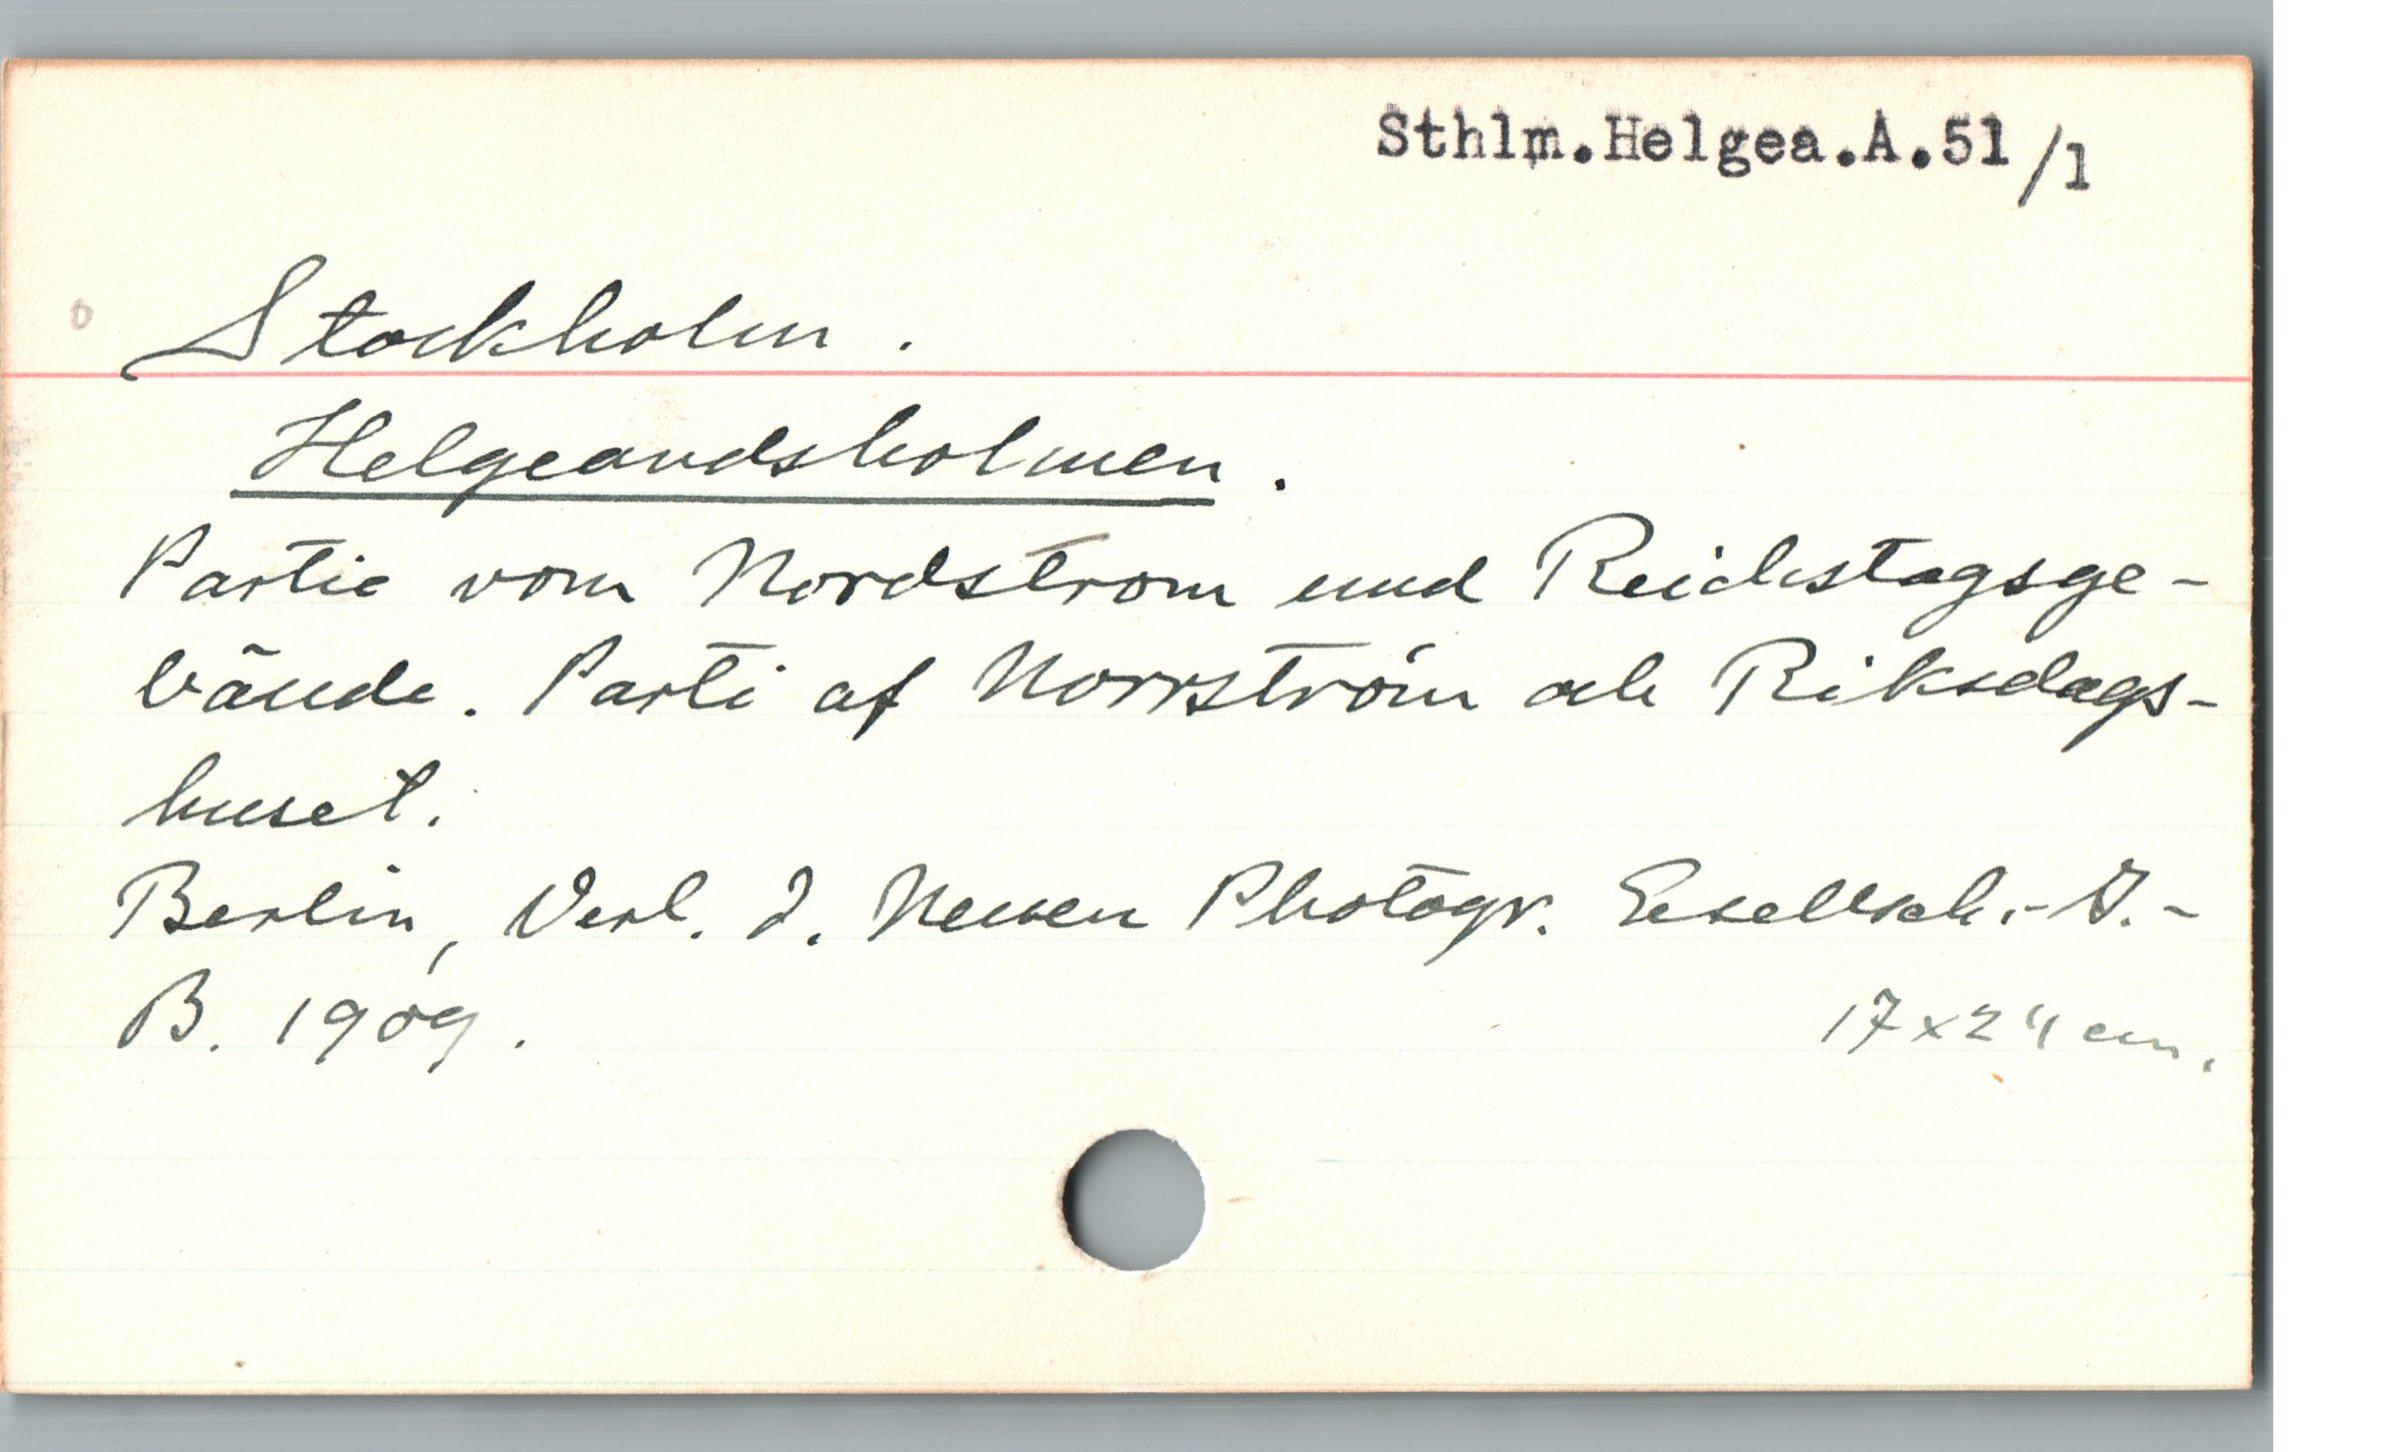 Sthlm.Helgea.A.51/1
Stockholm.
Helgeandsholmen.
Partie vom Nordstrom und Reichstagsge-
bäude. Parti af Norrström och Riksdags-
huset.
Berlin, Verl. d. Neuen Photogr. Gesellsch.-
B. 1909. 17x24 cm.